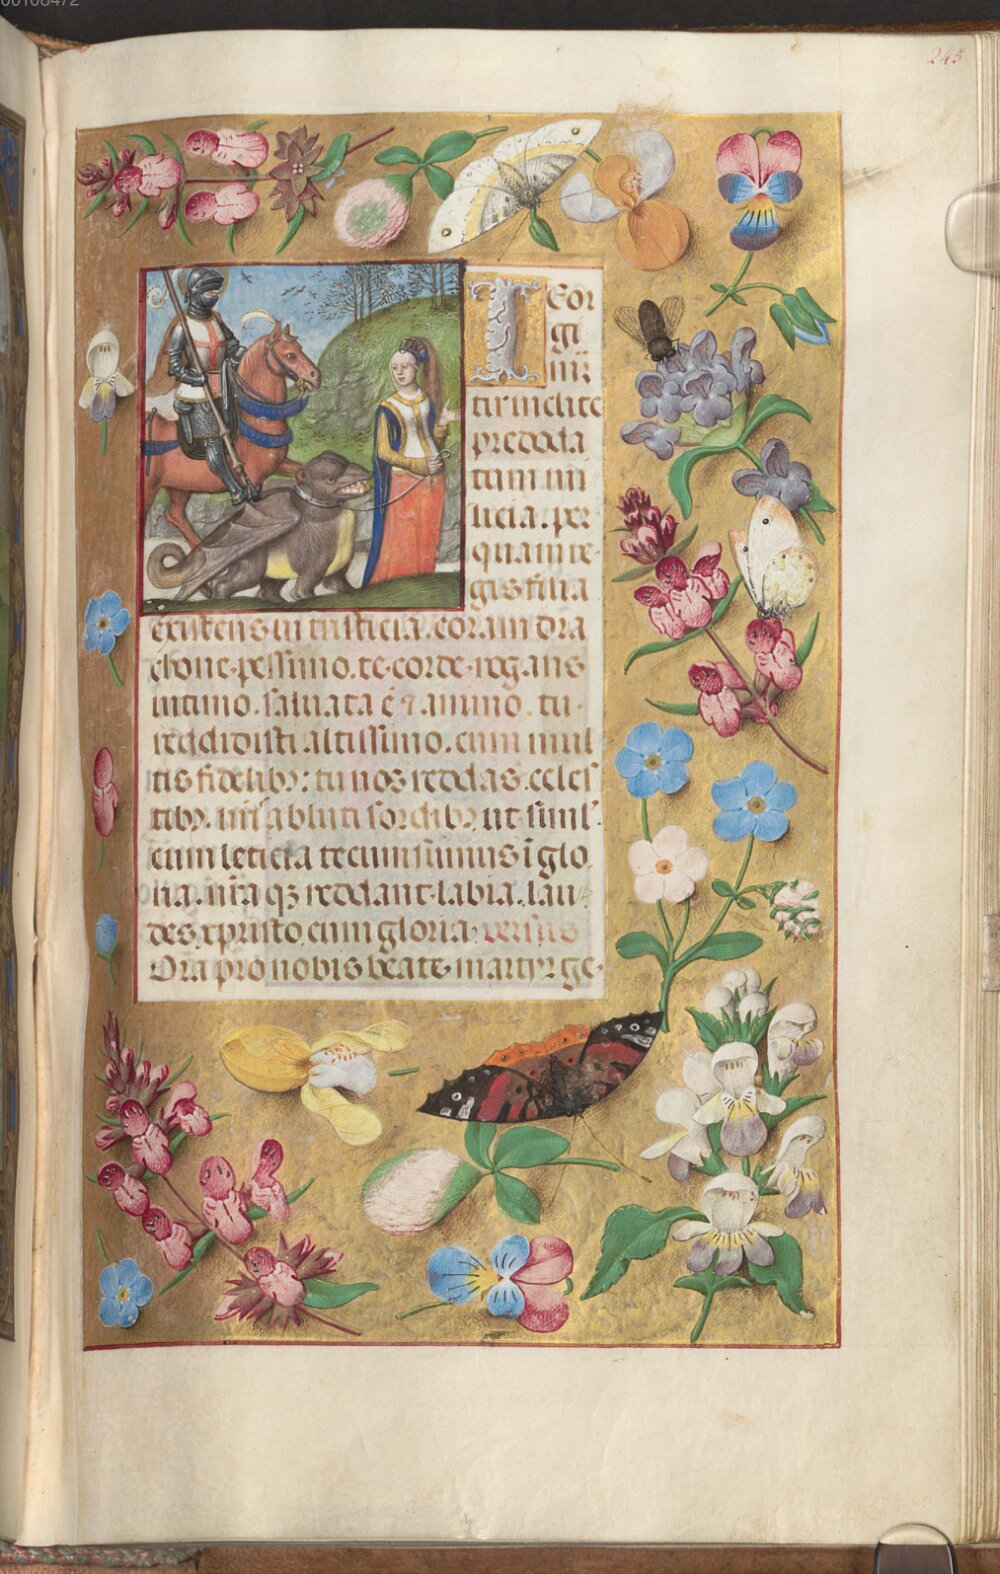 00108472
245
Geor
gi
mr
tir inclite
predocla
tum mi
licia. per
quam re
gis filia
existens in tristicia. coram dra
chone pessimo. te corde rogans
intimo. saluata ē ⁊ animo. tu
reddidisti altissimo. cum mul
tis fidelibꝰ: tu nos reddas celes
tibꝰ. nr̄īs abluti sordibꝰ ut simul
cum leticia tecum simus ī glo
ria. nr̄a qꝫ reddant labia. lau
des xpristo cum gloria. versus
Ora pro nobis beate martyr ge